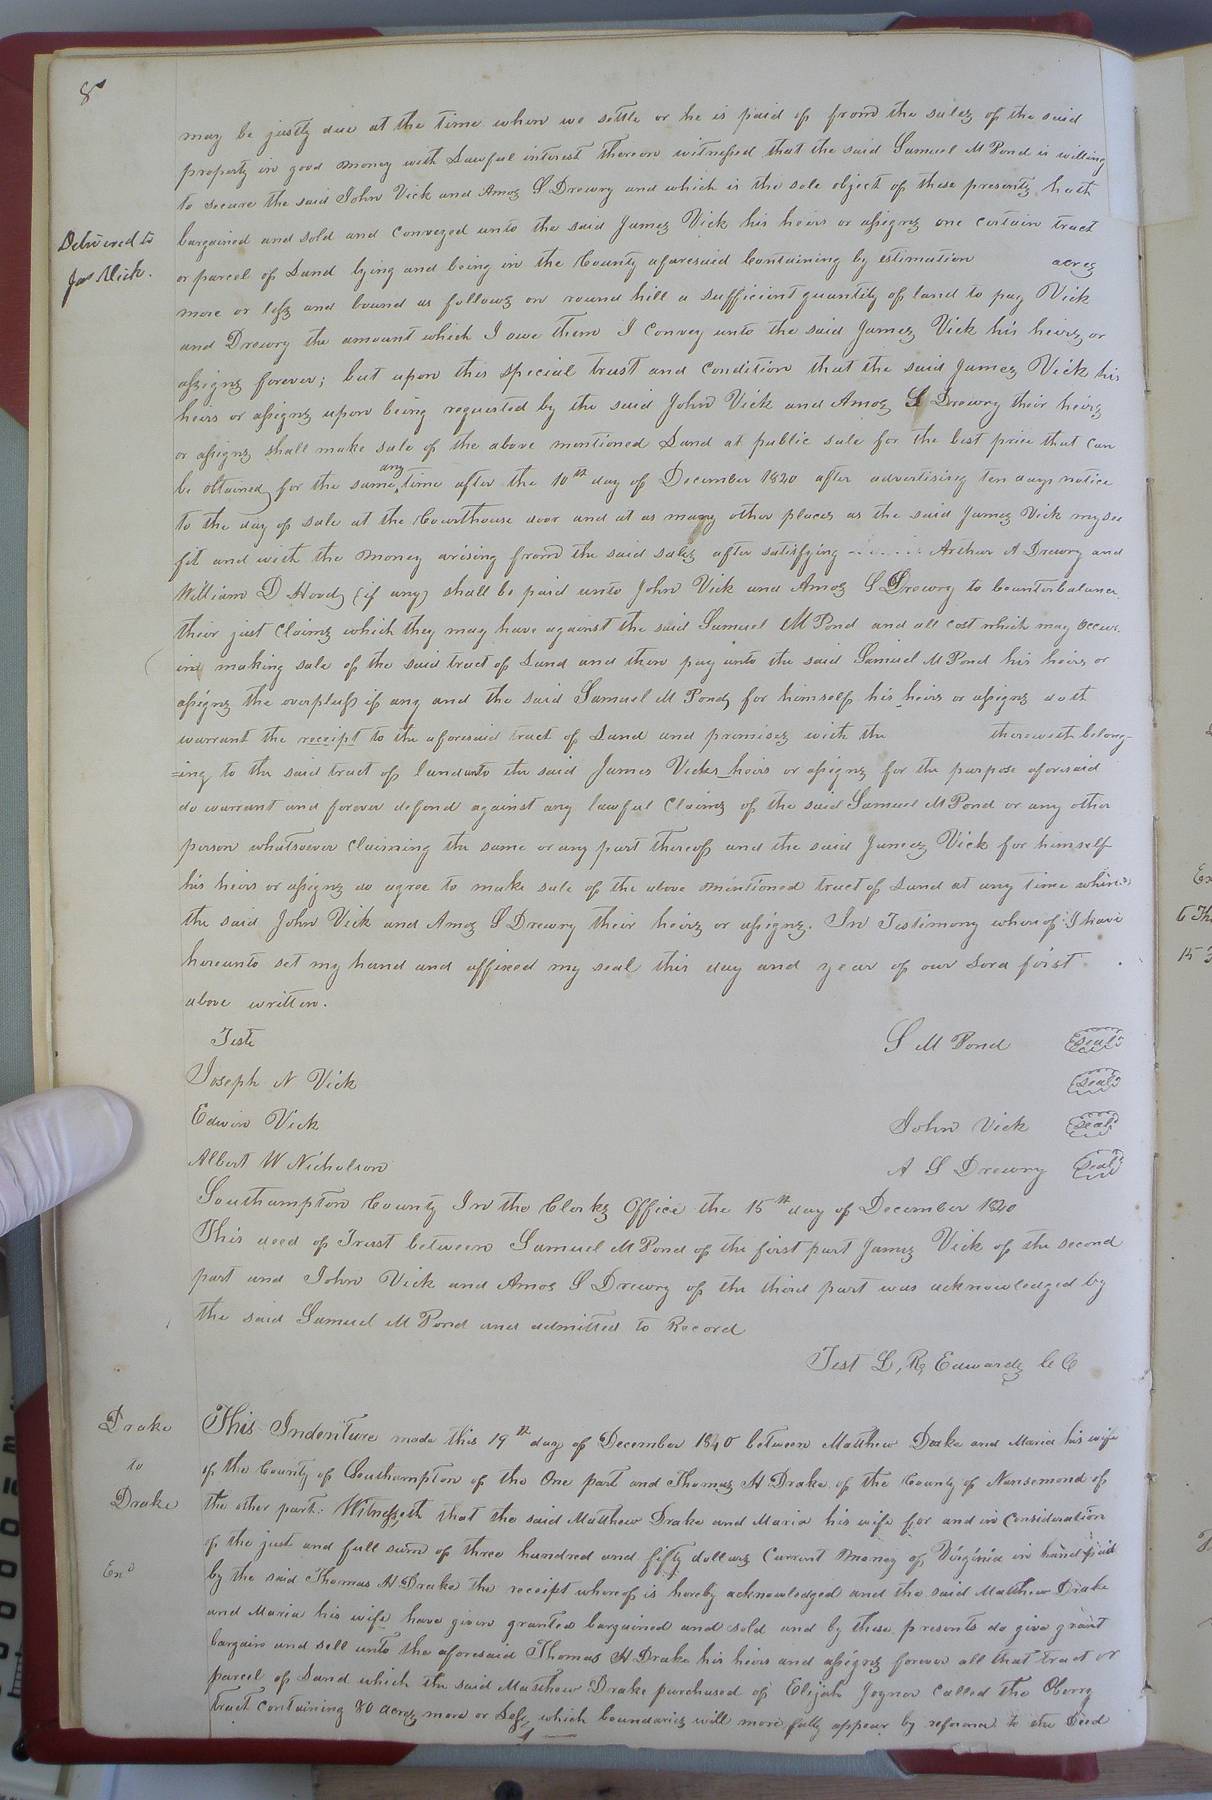 8
may be justly due at the time when we settle or he is paid of from the sales of the said
property in good money with Lawful interest thereon witnessed that the said Samuel M Pond is willing
to secure the said John Vick and Amos S Drewry and which is the sole object of these presents hath
Delivered to
Jas Vick.
bargained and sold and conveyed unto the said James Vick his heirs or assigns one certain tract
or parcel of Land lying and being in the County aforesaid Containing by estimation acres
more or less and bound as follows on round hill a sufficient quantity of land to pay Vick
and Drewry the amount which I owe them I convey unto the said James Vick his heirs or
assigns forever; but upon this special trust and condition that the said James Vick his
heirs or assigns upon being requested by the said John Vick and Amos S Drewry their heirs
or assigns shall make sale of the above mentioned Land at public sale for the best price that can
be obtained for the same any time after the 10th day of December 1840 after advertising ten days notice
to the day of sale at the Courthouse door and at as many other places as the said James Vick my see
fit and with the money arising from the said sales after satisfying Arthur A Drewry and
William D Hood (if any) shall be paid unto John Vick and Amos S Drewry to Counterbalance
their just Claims which they may have against the said Samuel M Pond and all cost which may occur
in making sale of the said tract of Land and then pay unto the said Samuel M Pond his heirs or
assigns the overpluss if any and the said Samuel M Pond for himself his heirs or assigns doth
warrant the receipt to the aforesaid tract of Land and promises with the therewith belong-
=ing to the said tract of land unto the said James Vicks heirs or assigns for the purpose aforesaid
do warrant and forever defend against any lawful Claims of the said Samuel M Pond or any other
person whatsoever Claiming the same or any part thereof and the said James Vick for himself
his heirs or assigns do agree to make sale of the above mentioned tract of Land at any time when
the said John Vick and Amos S Drewry their heirs or assigns. In Testimony whereof I have
hereunto set my hand and affixed my seal this day and year of our Lord first
above written.
Teste S M Pond Seal
Joseph N Vick Seal
Edwin Vick John Vick Seal
Albert W Nicholson A S Drewry Seal
Southampton County In the Clerks Office the 15th day of December 1840
This deed of Trust between Samuel M Pond of the first part James Vick of the second
part and John Vick and Amos S Drewry of the third part was acknowledged by
the said Samuel M Pond and admitted to Record
Test L, R, Edwards C C
Drake
to
Drake
Exd
This Indenture made this 19th day of December 1840 between Matthew Drake and Maria his wife
of the County of Southampton of the One part and Thomas H Drake of the County of Nansemond of
the other part: Witnesseth that the said Matthew Drake and Maria his wife for and in Consideration
of the just and full sum of three hundred and fifty dollars Current money of Virginia in hand paid
by the said Thomas H Drake the receipt whereof is hereby acknowledged and the said Matthew Drake
and Maria his wife have given granted bargained and sold and by these presents do give grant
bargain and sell unto the aforesaid Thomas H Drake his heirs and assigns forever all that tract or
parcel of Land which the said Matthew Drake purchased of Elijah Joyner Called the Oberry
tract containing 80 acres more or Less, which boundaries will more fully appear by reference to the Deed